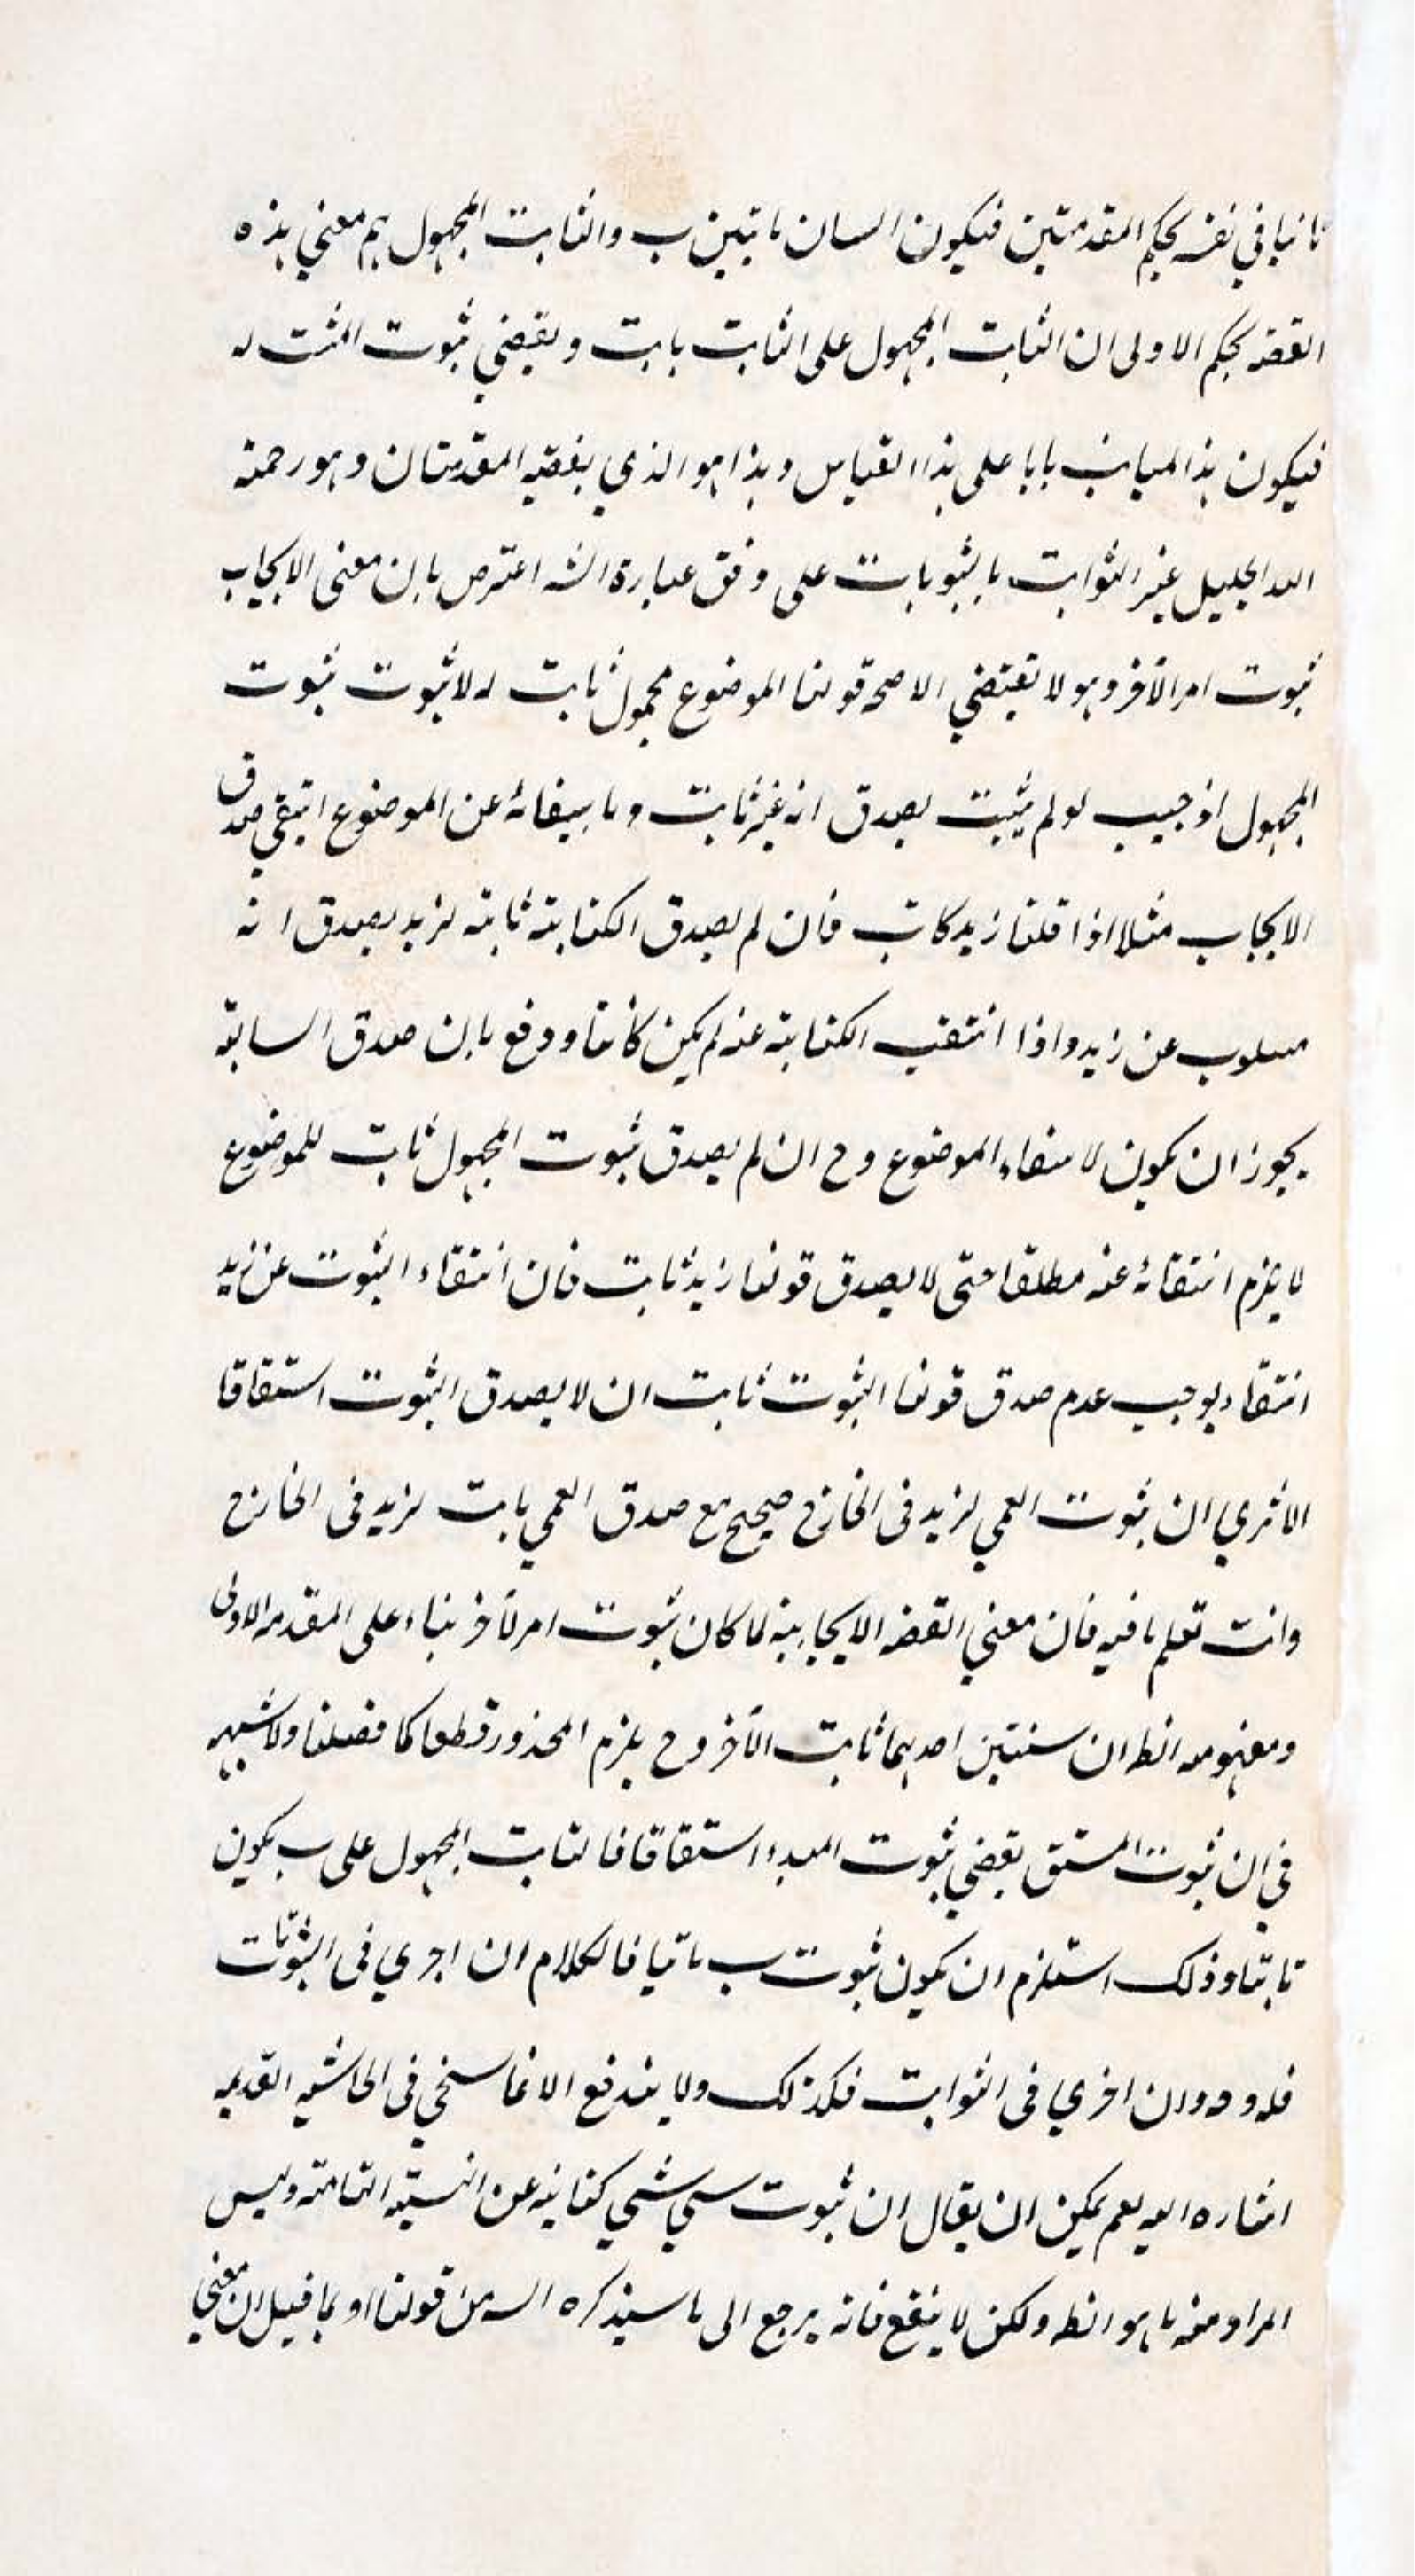 ثانيا في نفسه بحكم المقدمتين فيكون السان ثابتين ب والثابت المجهول ثم معني هذه
القضه بحكم الاولى ان الثابت المجهول على الثابت بابت و يقضي ثبوت المثبت له
فيكون هذا المباين بابا على هذا القياس وهذا هو الذي يفضيه المقدمتان وهو رحمة
الله الجليل غير الثوابت بالثبوبات على وفق عبارة الشه اعترض بان معنى الايجاب
ثبوت امر الآخر وهو لا تقتضي الا صحة قولنا الموضوع محمول ثابت له لا ثبوت ثبوت
المجهول اذ جيب لو لم يثبت يصدق انه غير ثابت وما سيفائه عن الموضوع انتفي صدق
الايجاب مثلا اذا قلنا زيد كاتب فان لم يصدق الكتابة ثابته لزيد يصدق انه
مسلوب عن زيد واذا انتفت الكتابة عنه لم يكن كاتبا ودفع بان صدق السابة
يجوز ان يكون لا منفاء الموضوع وح ان لم يصدق ثبوت المجهول ثابت للموضوع
لا يلزم انتفائه عنه مطلقا حتى لا يصدق قولنا زيد ثابت فان انتفاء الثبوت عن زيد
انتفاء يوجب عدم صدق قولنا الثبوت ثابت ان لا يصدق الثبوت استقاقا
الا تري ان ثبوت العمي لزيد في الخارج صحيح مع صدق العمي بابت لزيد في الخارج
وانت تعلم ما فيه فان معني القضه الايجابية لما كان ثبوت امر لآخر بناء على المقدمه الاولى
ومفهومه انظ ان سنتين احديهما ثابت الآخر وح يلزم المحذور قطعا كما فصلنا ولا شبهه
في ان ثبوت المستق يقضي ثبوت المبدء استقاقا فالثابت المجهول على ب يكون
ثابتا وذلك استلزم ان يكون ثبوت ب ثابتا فالكلام ان اجري في الثبوتات
فله وه وان اخري في الثوابت فكذلك ولا يندفع الا بما سنحي في الحاشيه القديمه
اشاره اليه نعم يمكن ان يقال ان ثبوت سي شي كناية عن النسبته التامته وليس
المراد منه ما هو انظ ولكن لا ينفع فانه يرجع الى ما سيذكره السه من قولنا او بما قيل ان معني